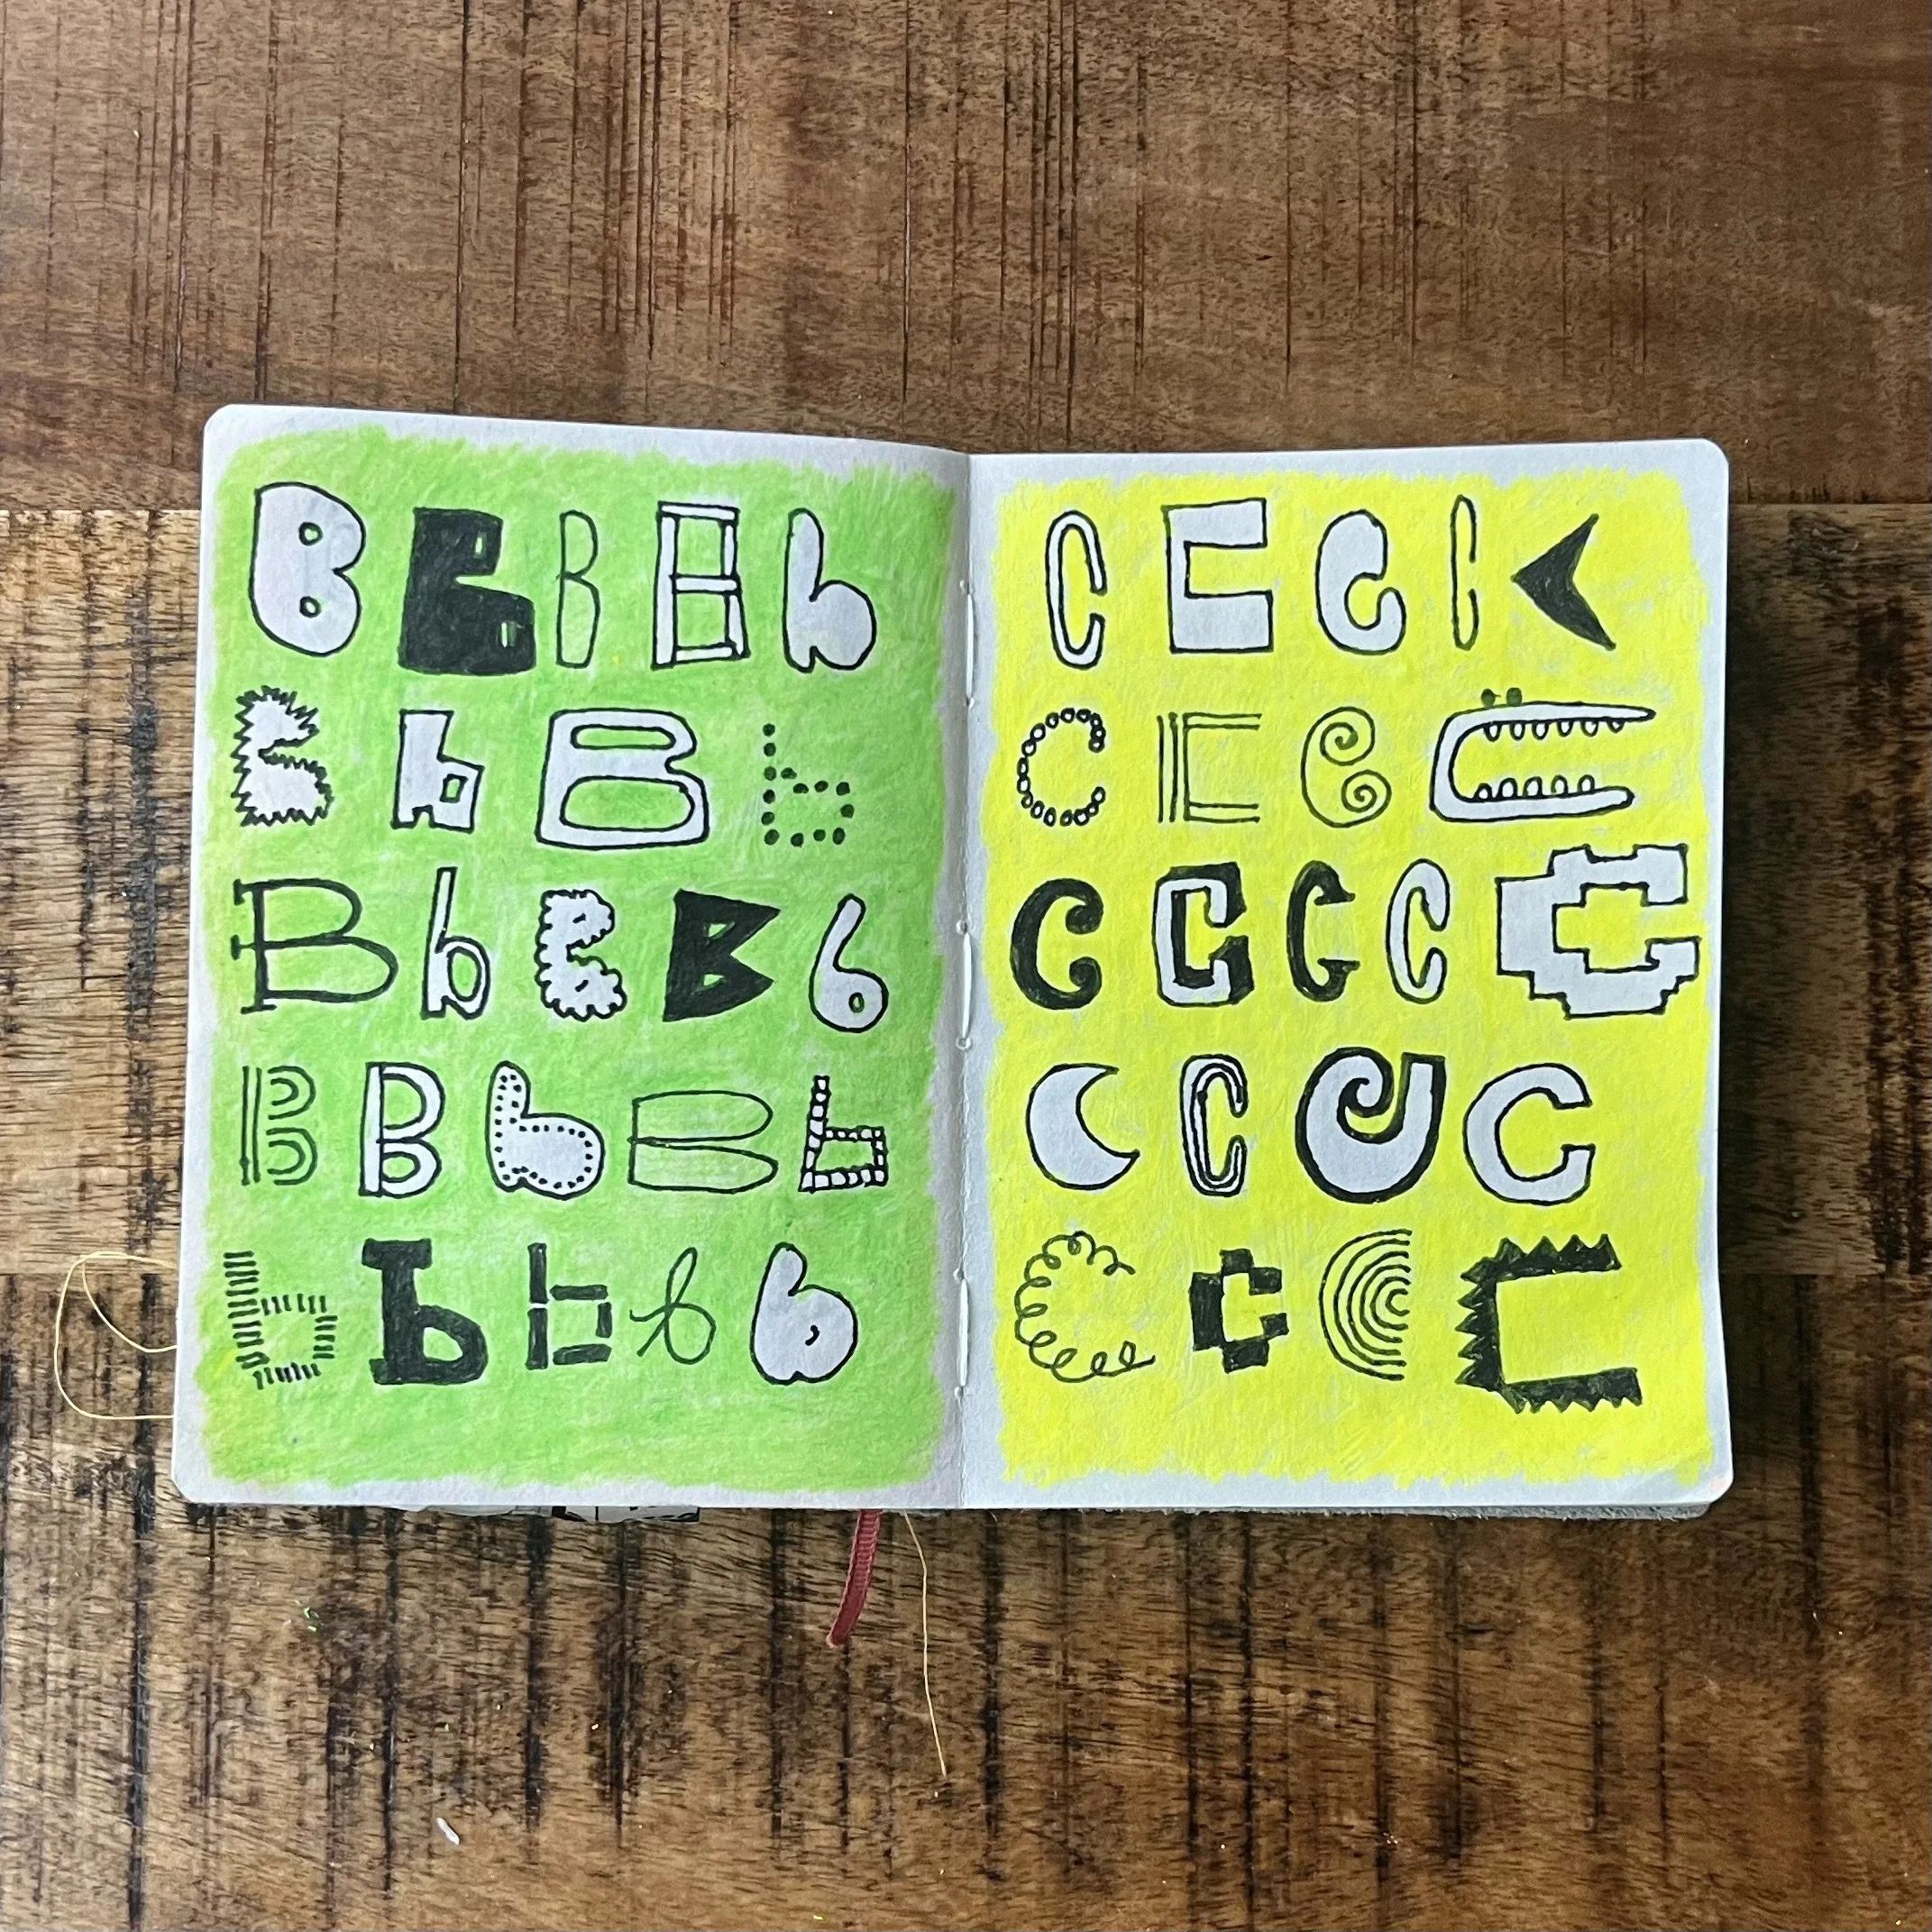 B B B B b
B b B b
B b B B b
B B b B b
b b b b b
C C C C C
C C C C
C C C C C
C C C C
C C C C